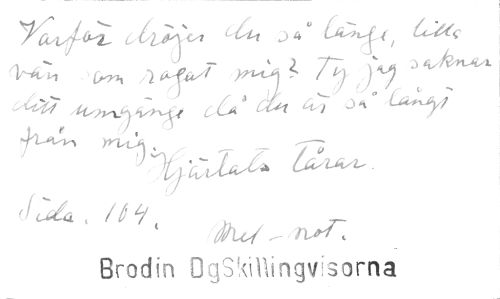 Varför dröjer du så länge, lilla
vän som rogat mig? Ty jag saknar
ditt umgänge då du är så långt
från mig.
Hjärtats Tårar.
Sida. 104.
Mel-not.
Brodin DgSkillingvisorna